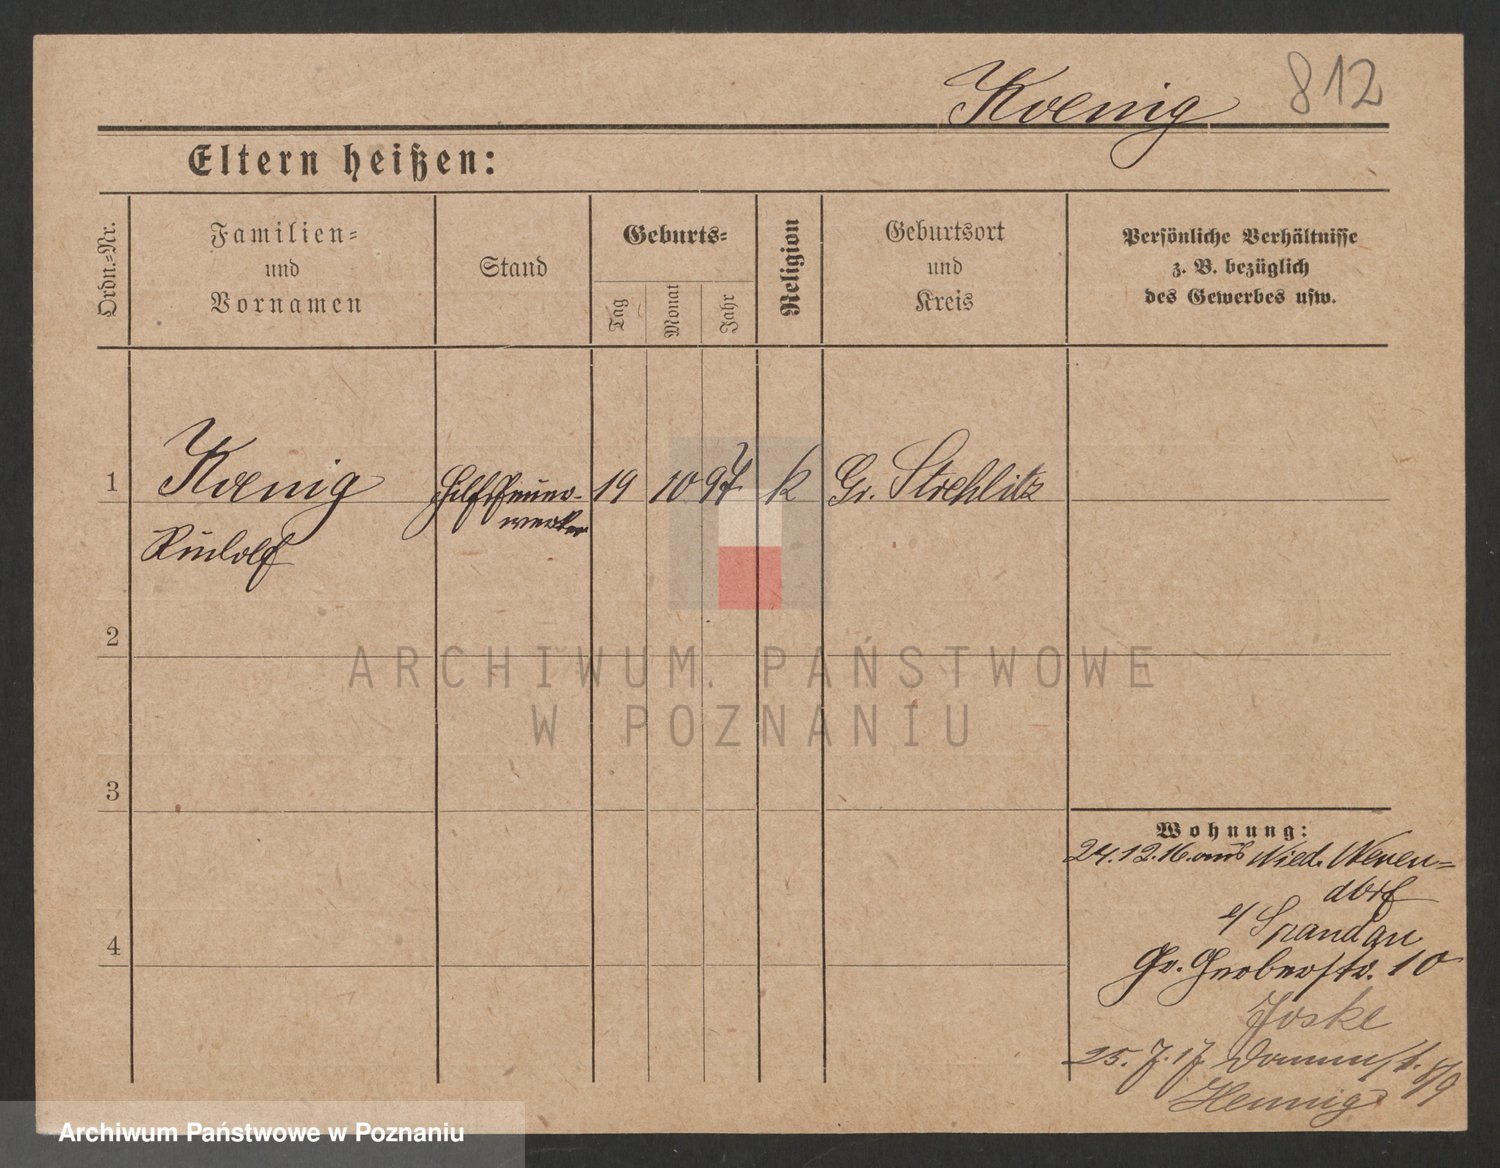 Koenig 812
Eltern heißen:
Ordn.-Nr.
Familien-
und
Vornamen
Stand
Geburts-
Tag
Monat
Jahr
Religion
Geburtsort
und
Kreis
Persönliche Verhältnisse
z. B. bezüglich
des Gewerbes usw.
1 Koenig Hilfsfeuer- 19 10 97 k Gr. Strehlitz
werker
Rudolf
2
3
4
Wohnung:
24.12.16. aus Nied. Neuen-
dorf
Spandau
Gr. Gerberstr. 10
Joske
25. 7. 17 Dominikst. 8/9
Hennig
ARCHIWUM PAŃSTWOWE
W POZNANIU
Archiwum Państwowe w Poznaniu